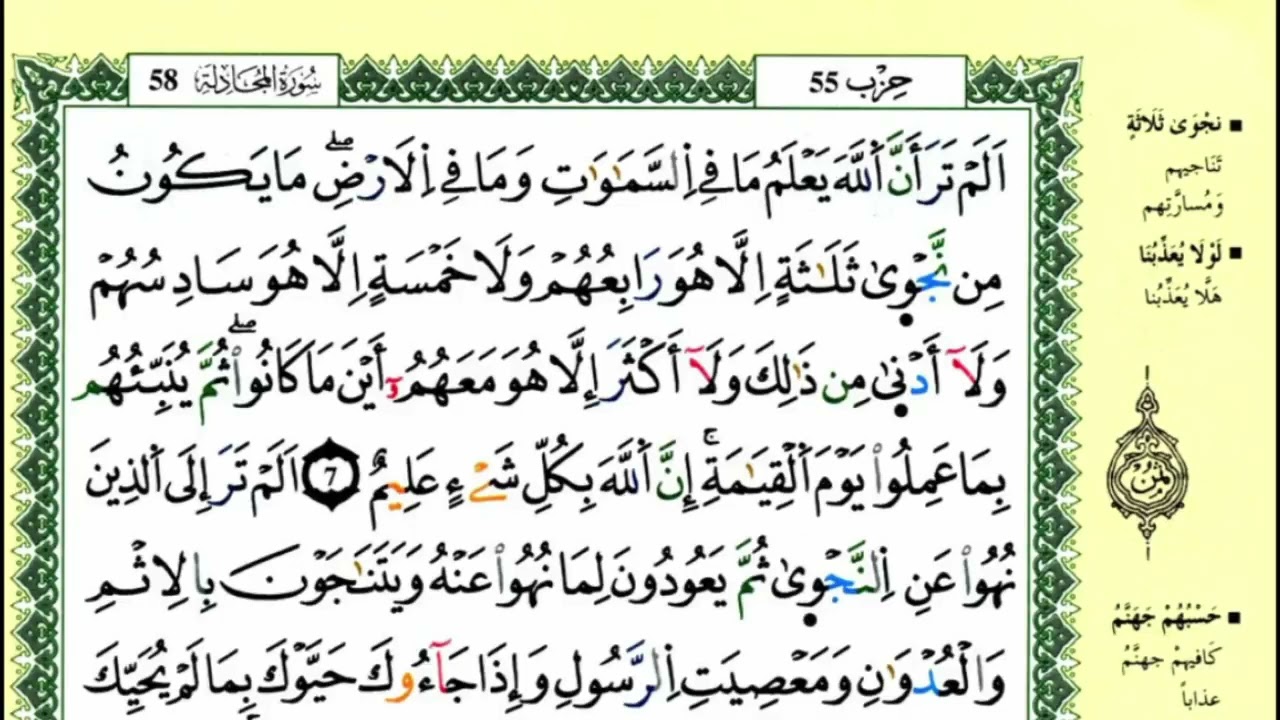 حِزْب 55
سُورَةُ المُجَادلَة 58
اَلَمْ تَرَ أَنَّ اَ۬للَّهَ يَعْلَمُ مَا فِے اِ۬لسَّمَٰوَٰتِ وَمَا فِے اِ۬لَارْضِۖ مَا يَكُونُ
مِن نَّجْو۪ىٰ ثَلَٰثَةٍ اِلَّا هُوَ رَابِعُهُمْ وَلَا خَمْسَةٍ اِلَّا هُوَ سَادِسُهُمْ
وَلَآ أَدْن۪ىٰ مِن ذَٰلِكَ وَلَآ أَكْثَرَ إِلَّا هُوَ مَعَهُمُۥٓ أَيْنَ مَا كَانُواْۖ ثُمَّ يُنَبِّئُهُم
بِمَا عَمِلُواْ يَوْمَ اَ۬لْقِيَٰمَةِۚ إِنَّ اَ۬للَّهَ بِكُلِّ شَےْءٍ عَلِيمٌۖ 7 اَلَمْ تَرَ إِلَى اَ۬لذِينَ
نُهُواْ عَنِ اِ۬لنَّجْو۪ىٰ ثُمَّ يَعُودُونَ لِمَا نُهُواْ عَنْهُ وَيَتَنَٰجَوْنَ بِالِاثْمِ
وَالْعُدْوَٰنِ وَمَعْصِيَتِ اِ۬لرَّسُولِ وَإِذَا جَآءُوكَ حَيَّوْكَ بِمَا لَمْ يُحَيِّكَ
■ نجْوَىٰ ثَلَاثَةٍ
تَنَاجيهِم
وَمُسارَّتِهم
■ لَوْلَا يُعَذِّبُنَا
هَلَّا يُعَذِّبُنا
ثمن
■ حَسْبُهُمْ جَهَنَّمُ
كَافِيهِمْ جهنَّمُ
عذاباً